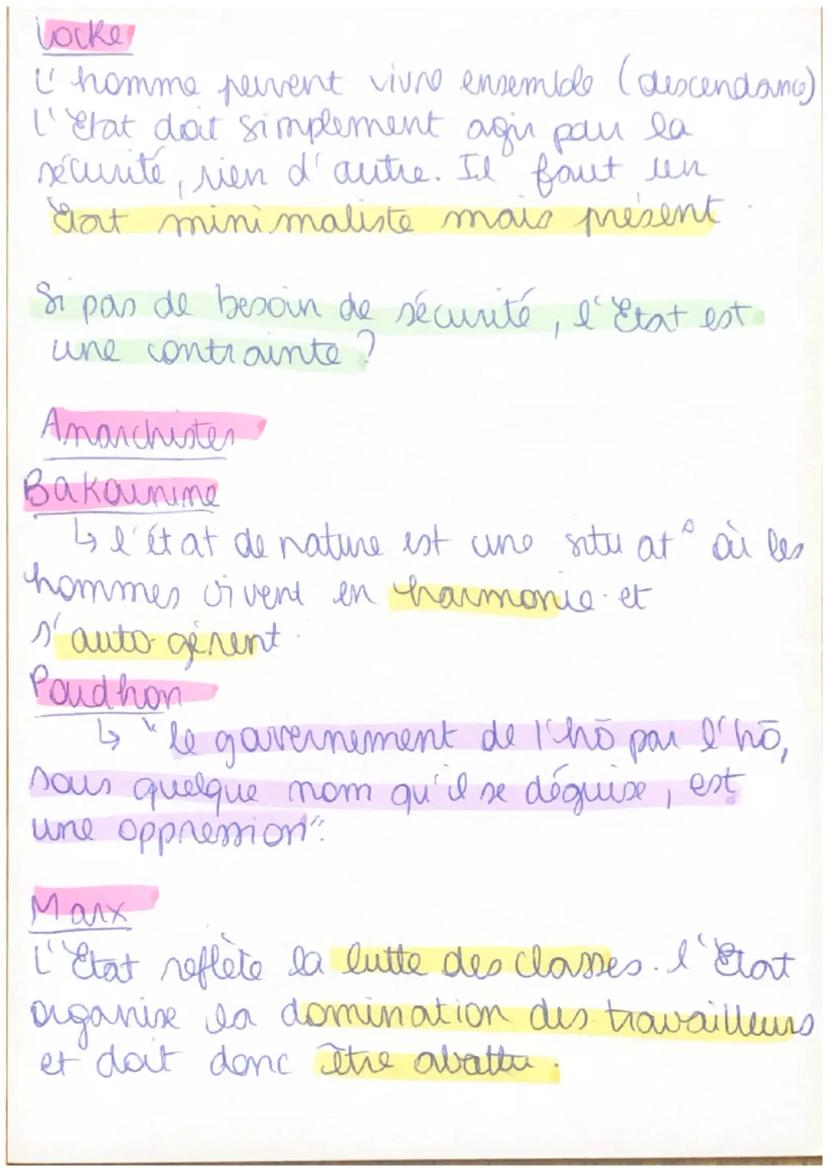 Locke
L'homme peuvent vivre ensemble (descendance)
l'Etat doit simplement agir pour la
sécurité, rien d'autre. Il faut un
Etat minimaliste mais présent.
Si pas de besoin de sécurité, l'Etat est
une contrainte ?
Anarchistes
Bakounine
↳ l'état de nature est une situat° où les
hommes vivent en harmonie et
s'auto gèrent.
Poudhon
↳ "le gouvernement de l'hō par l'hō,
sous quelque nom qu'il se déguise, est
une oppression".
Marx
L'Etat reflète la lutte des classes. l'Etat
organise la domination des travailleurs
et doit donc être abattu.